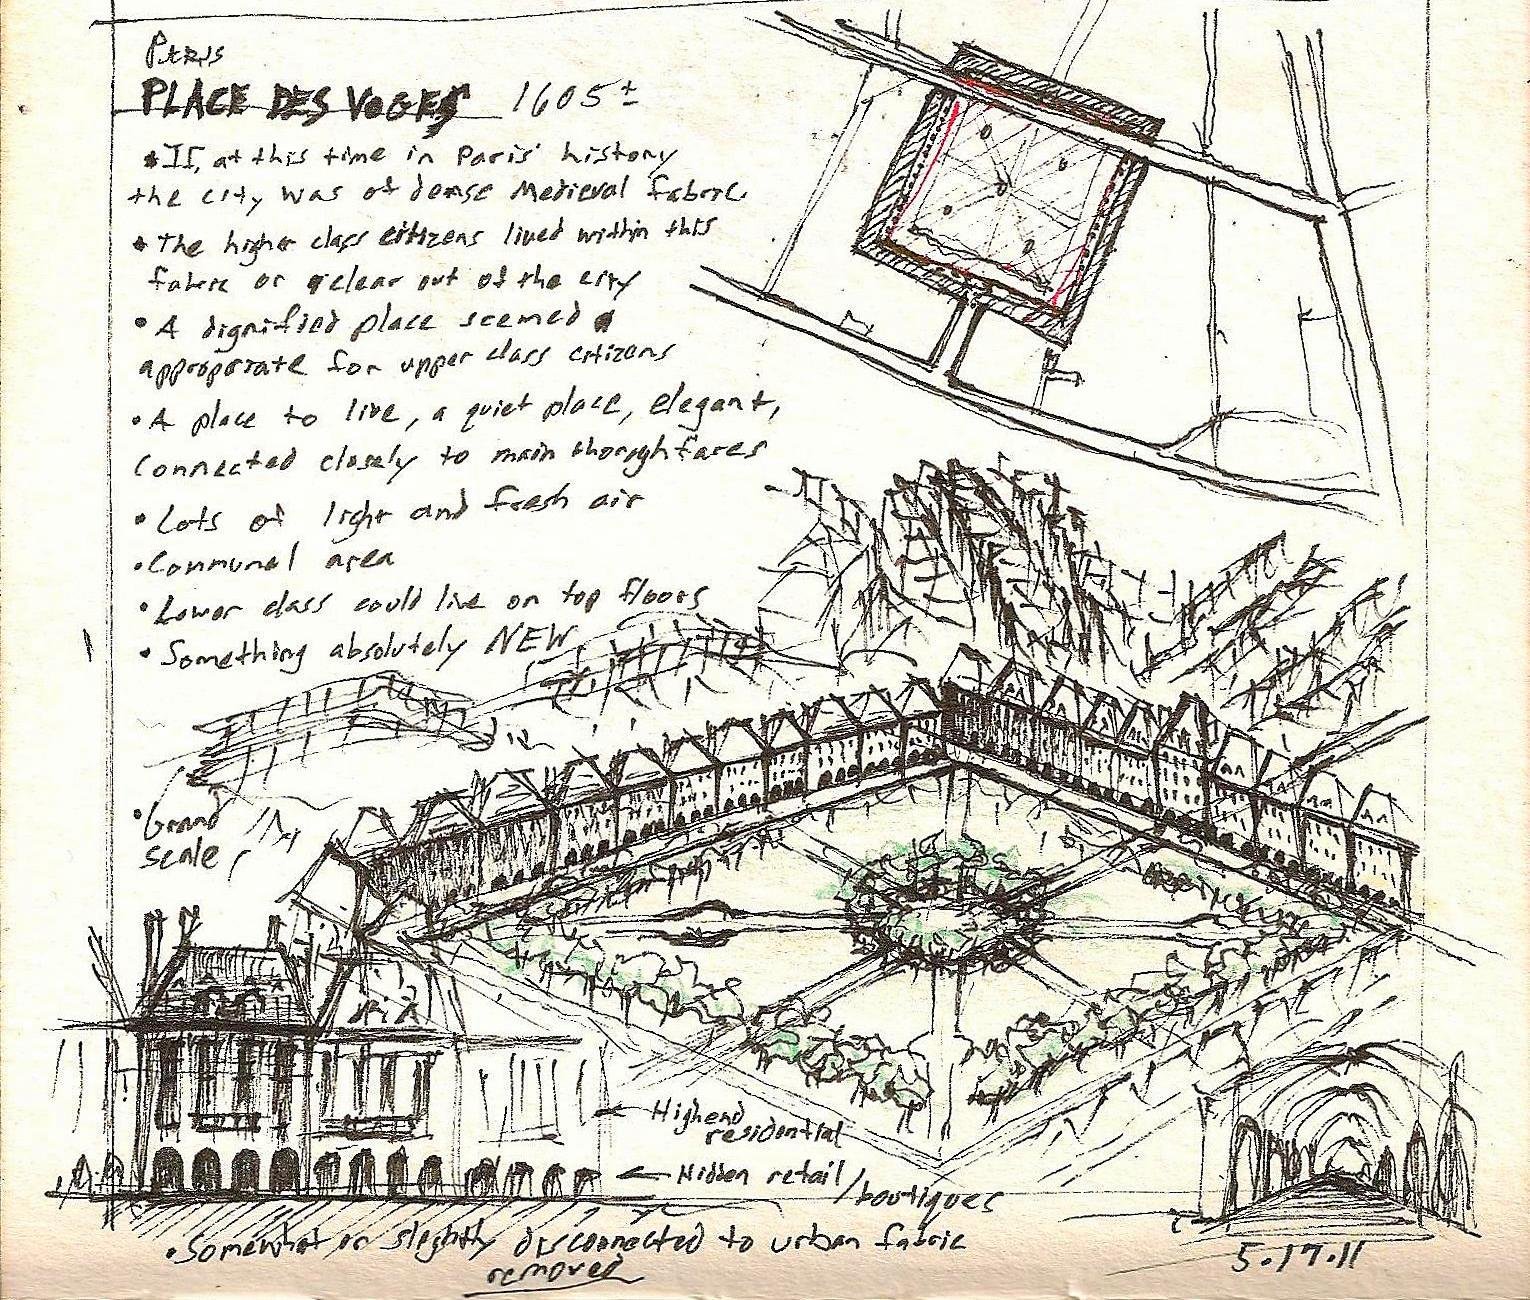 Paris
PLACE DES VOGES 1605±
• If, at this time in Paris' history
the city was of dense Medieval fabric
• The higher class citizens lived within this
fabric or clear out of the city
• A dignified place seemed
appropriate for upper class citizens
• A place to live, a quiet place, elegant,
Connected closely to main thorughfares
• Lots of light and fresh air
• Communal area
• Lower class could live on top floors
• Something absolutely NEW
• Grand
scale
Highend
residential
Hidden retail/
boutiques
• Somewhat or slightly disconnected to urban fabric
removed
5.17.11